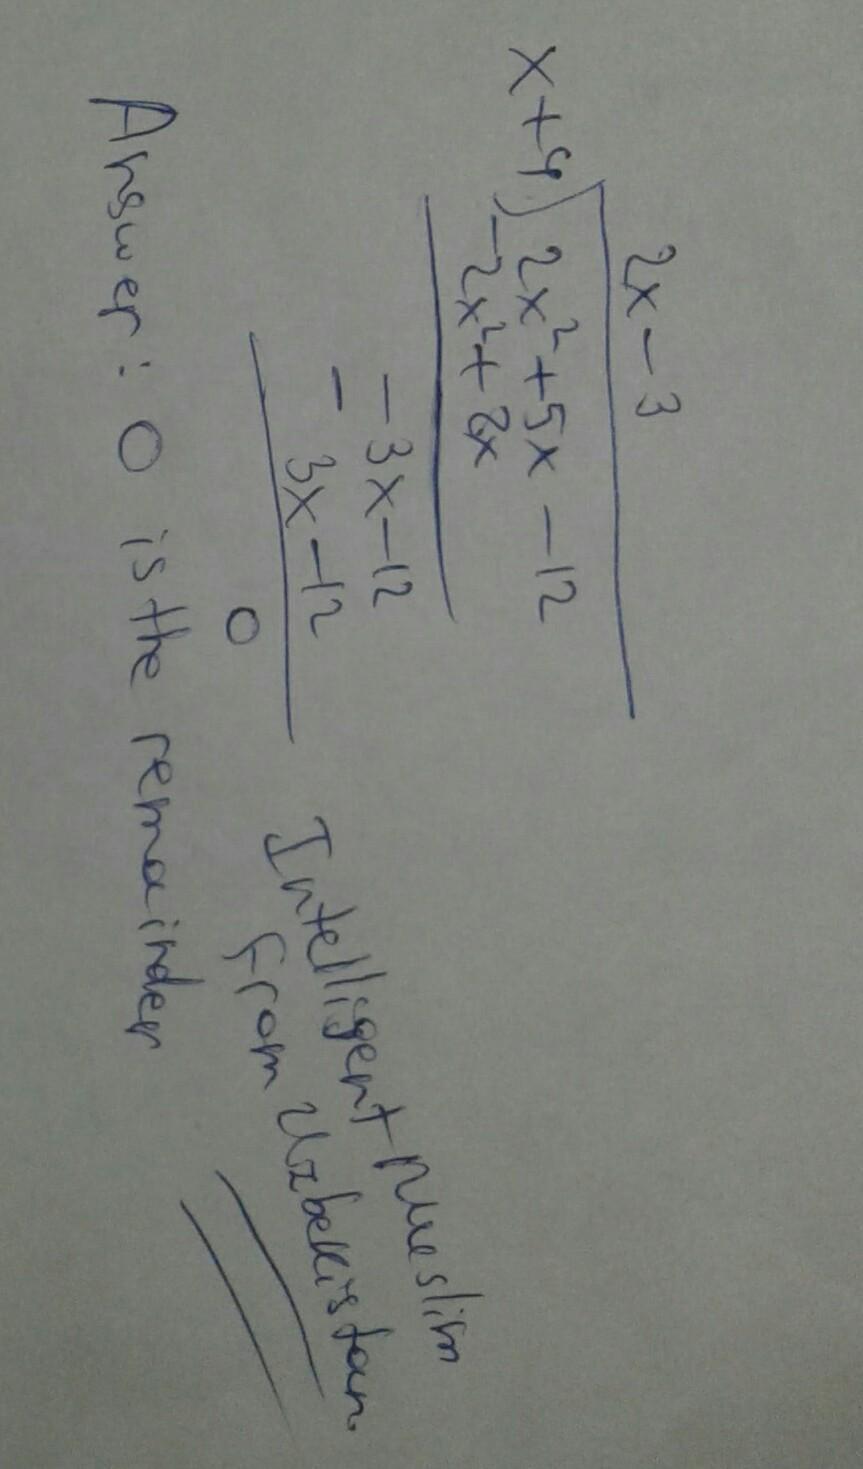 2x - 3
x + 4 ) 2x² + 5x - 12
- 2x² + 8x
- 3x - 12
- 3x - 12
0
Intelligent Muslim
from Uzbekistan.
Answer: 0 is the remainder